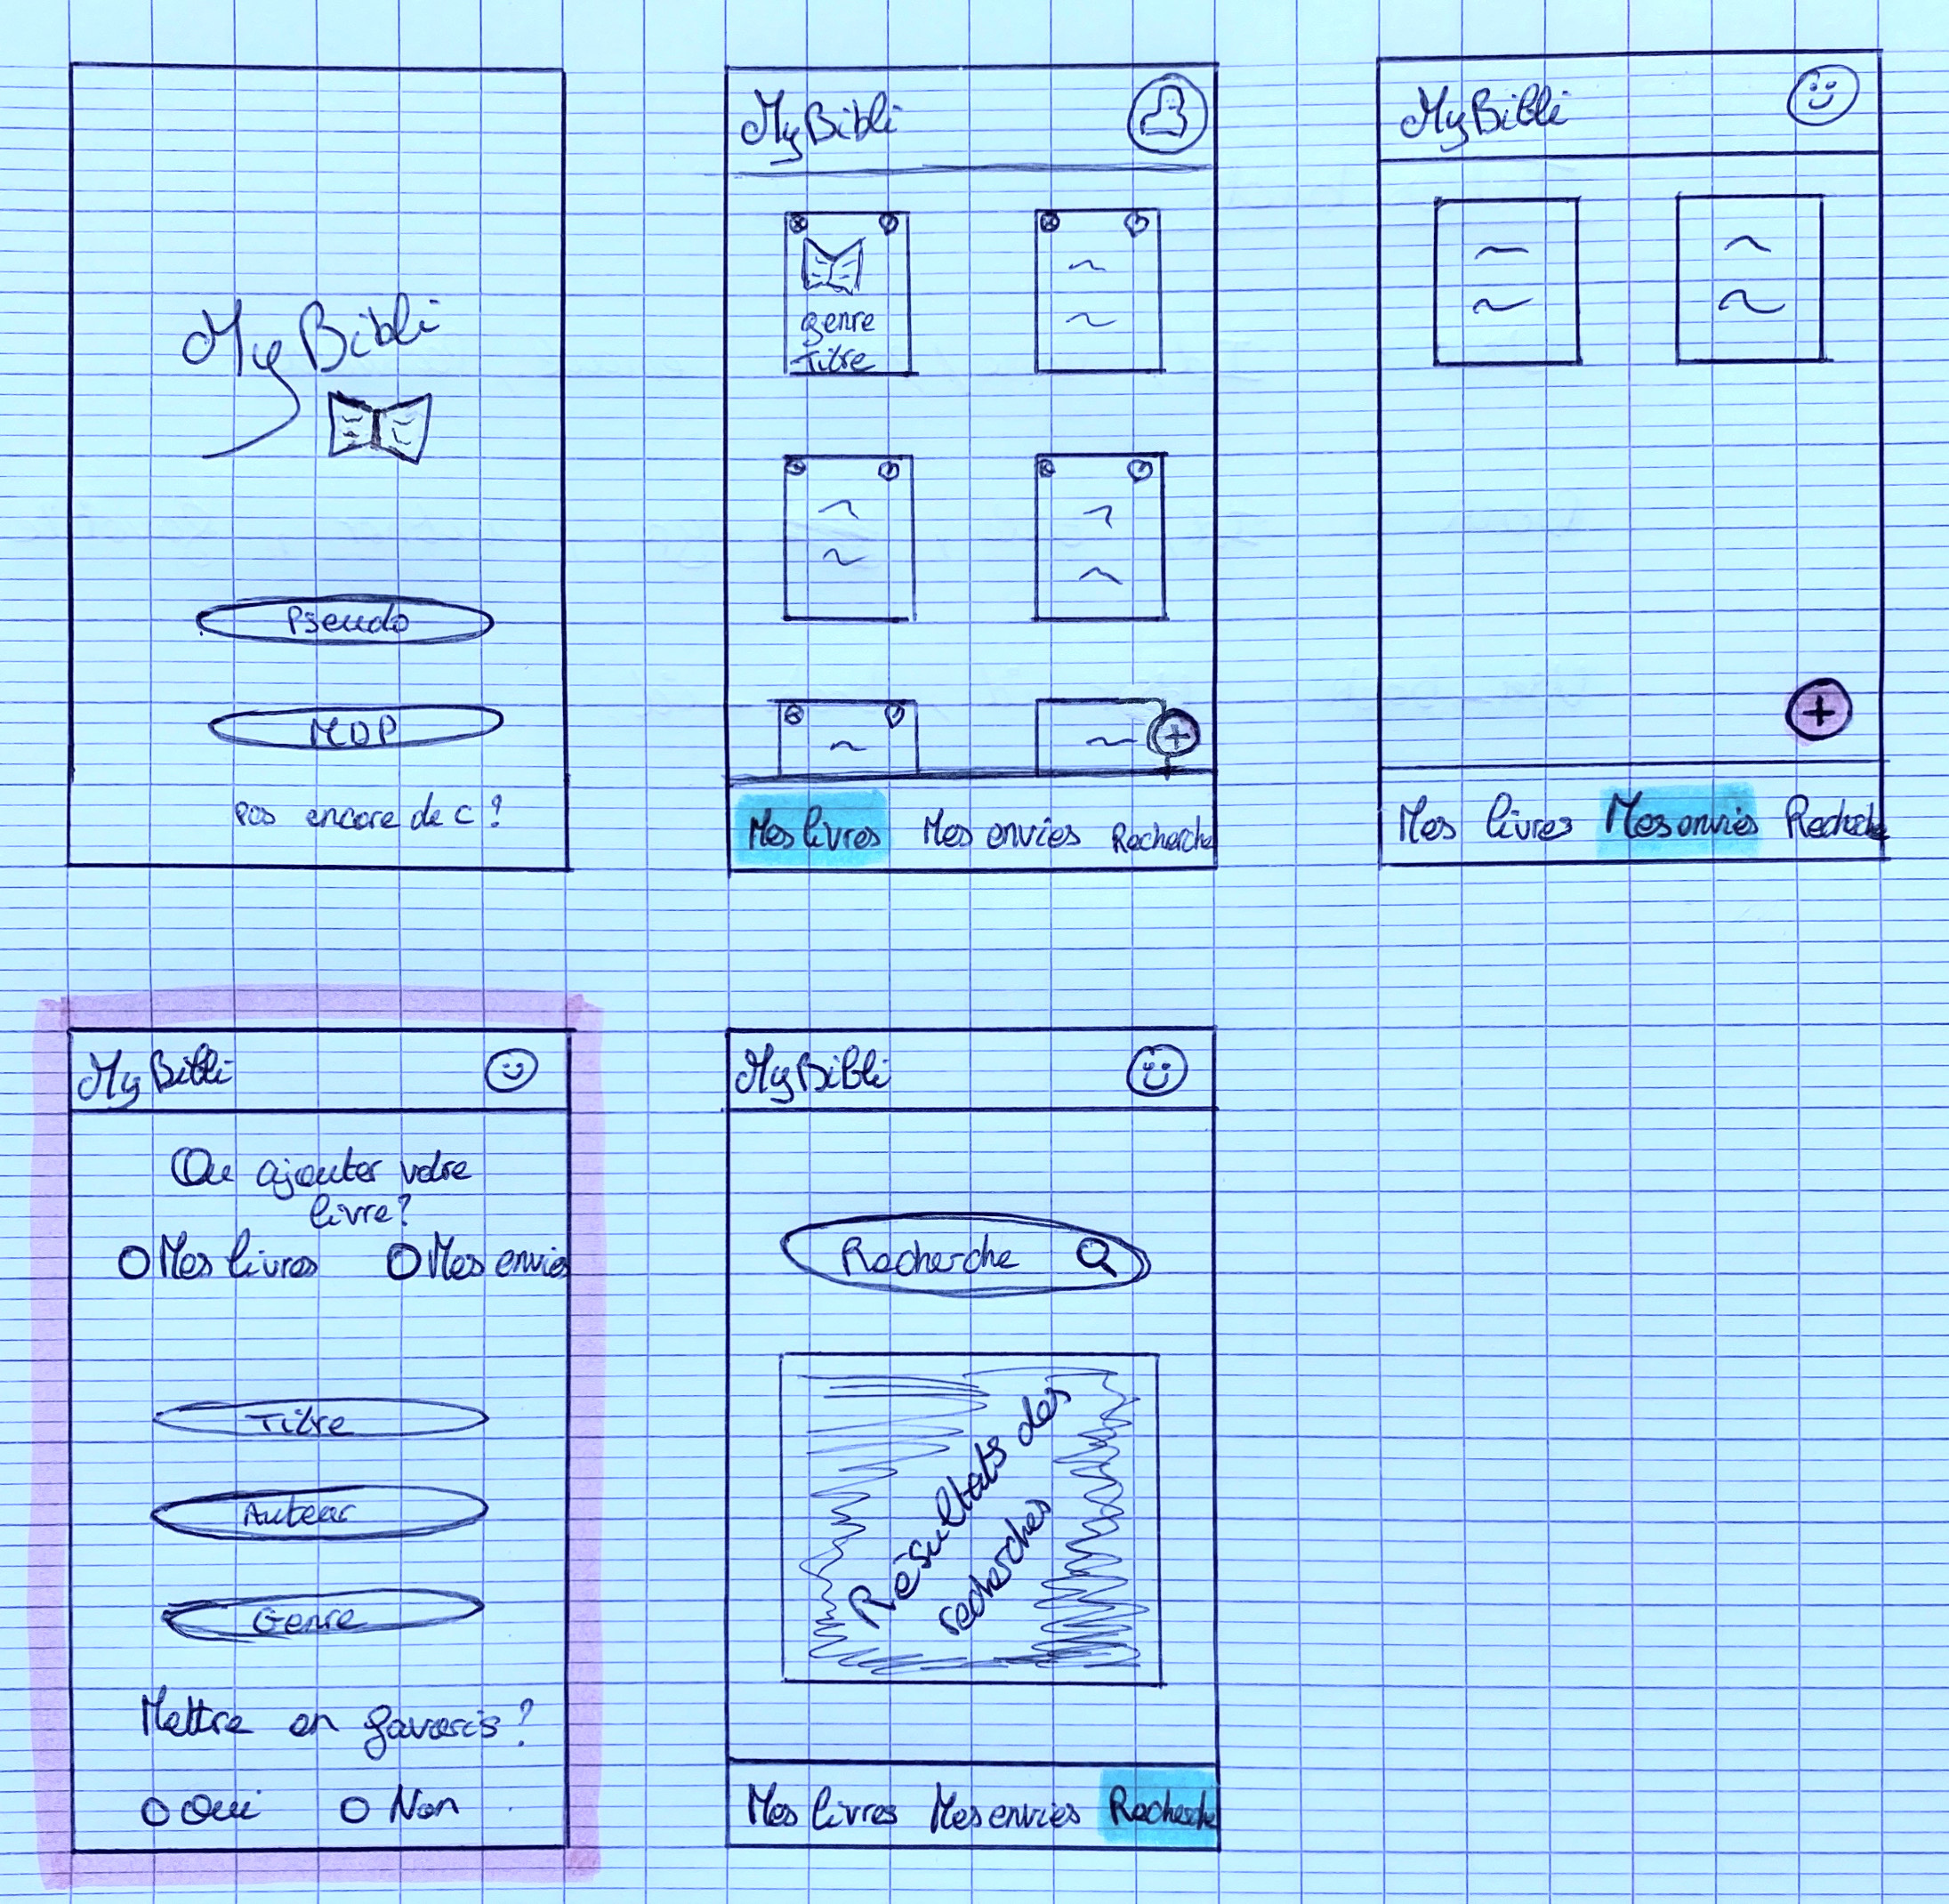 My Bibli
Pseudo
MDP
pas encore de c ?
My Bibli
genre
Titre
+
Mes livres Mes envies Recherche
My Bibli
+
Mes livres Mes envies Recherche
My Bibli
Ou ajouter votre
livre ?
Mes livres Mes envies
Titre
Auteur
Genre
Mettre en favoris ?
Oui Non
My Bibli
Recherche
Résultats des
recherches
Mes livres Mes envies Recherche